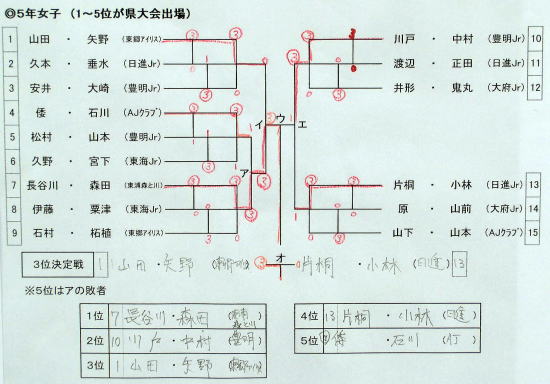 ◎5年女子 (1〜5位が県大会出場)
1 山田 ・ 矢野 (東郷アイリス)
2 久本 ・ 垂水 (日進Jr)
3 安井 ・ 大崎 (豊明Jr)
4 倭 ・ 石川 (AJクラブ)
5 松村 ・ 山本 (豊明Jr)
6 久野 ・ 宮下 (東海Jr)
7 長谷川 ・ 森田 (東浦森と川)
8 伊藤 ・ 粟津 (東海Jr)
9 石村 ・ 柘植 (東郷アイリス)
川戸 ・ 中村 (豊明Jr) 10
渡辺 ・ 正田 (日進Jr) 11
井形 ・ 鬼丸 (大府Jr) 12
片桐 ・ 小林 (日進Jr) 13
原 ・ 山前 (大府Jr) 14
山下 ・ 山本 (AJクラブ) 15
イ ウ エ
ア
オ
3位決定戦 1 山田・矢野 ③ 1 片桐 ・ 小林 (日進) 13
※5位はアの敗者
1位 7 長谷川・森田
2位 10 川戸・中村 (豊明)
3位 1 山田・矢野
4位 13 片桐・小林 (日進)
5位 倭・石川